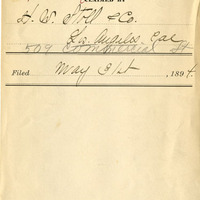 CLAIMED BY
H. W. Stoll & Co.
Los Angeles, Cal
509 Commercial St
Filed May 31st, 1894.